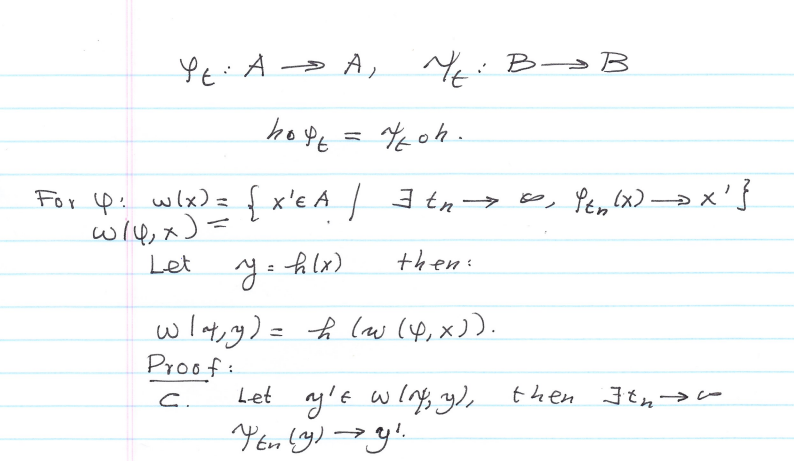 φ_t : A → A, ψ_t : B → B
h∘φ_t = ψ_t∘h.
For φ: w(x) = { x'∈A / ∃ t_n → ∞, φ_{t_n}(x) → x' }
w(φ,x) =
Let y = h(x) then:
w(ψ,y) = h(w(φ,x)).
Proof:
⊂. Let y'∈ w(ψ,y), then ∃ t_n → ∞
ψ_{t_n}(y) → y'.